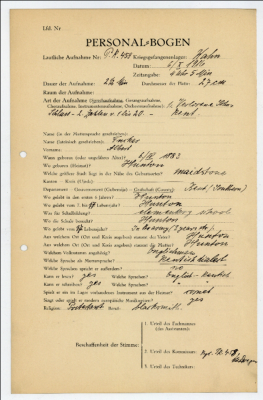 Lfd. Nr
PERSONAL-BOGEN
Lautliche Aufnahme Nr: P.K. 458 Kriegsgefangenenlager: Hahn
Datum:
Zeitangabe: 4 Uhr 5 Min
Dauer der Aufnahme: 2½ Min Durchmesser der Platte: 27 cm
Raum der Aufnahme:
Art der Aufnahme (Sprechaufnahme, Gesangsaufnahme,
Choraufnahme, Instrumentenaufnahme, Orchesteraufnahme):
Zahlen v. 1 bis 20. Kent
Name (in der Muttersprache geschrieben):
Name (lateinisch geschrieben): Tucker
Vorname: Albert
Wann geboren (oder ungefähres Alter)? 1883
Wo geboren (Heimat)? Hunton
Welche größere Stadt liegt in der Nähe des Geburtsortes? maidstone
Kanton - Kreis (Ujedz):
Departement - Gouvernement (Gubernija) - Grafschaft (County): Kent
Wo gelebt in den ersten 6 Jahren? Hunton
Wo gelebt vom 7. bis Lebensjahr? Hunton
Was für Schulbildung? elementary school
Wo die Schule besucht? Hunton
Wo gelebt vom Lebensjahr?
Aus welchem Ort (Ort und Kreis angeben) stammt der Vater? Hunton
Aus welchem Ort (Ort und Kreis angeben) stammt die Mutter? Hunton
Welchem Volksstamm angehörig? Englishman
Welche Sprache als Muttersprache? Kentish dialect
Welche Sprachen spricht er außerdem? no
Kann er lesen? yes Welche Sprachen? English
Kann er schreiben? yes Welche Sprachen?
Spielt er ein im Lager vorhandenes Instrument aus der Heimat?
Singt oder spielt er modern europäische Musikweisen? yes
Religion: Protestant Beruf: blacksmith
Beschaffenheit der Stimme:
1. Urteil des Fachmannes
(des Assistenten):
2. Urteil des Kommissars:
3. Urteil des Technikers: